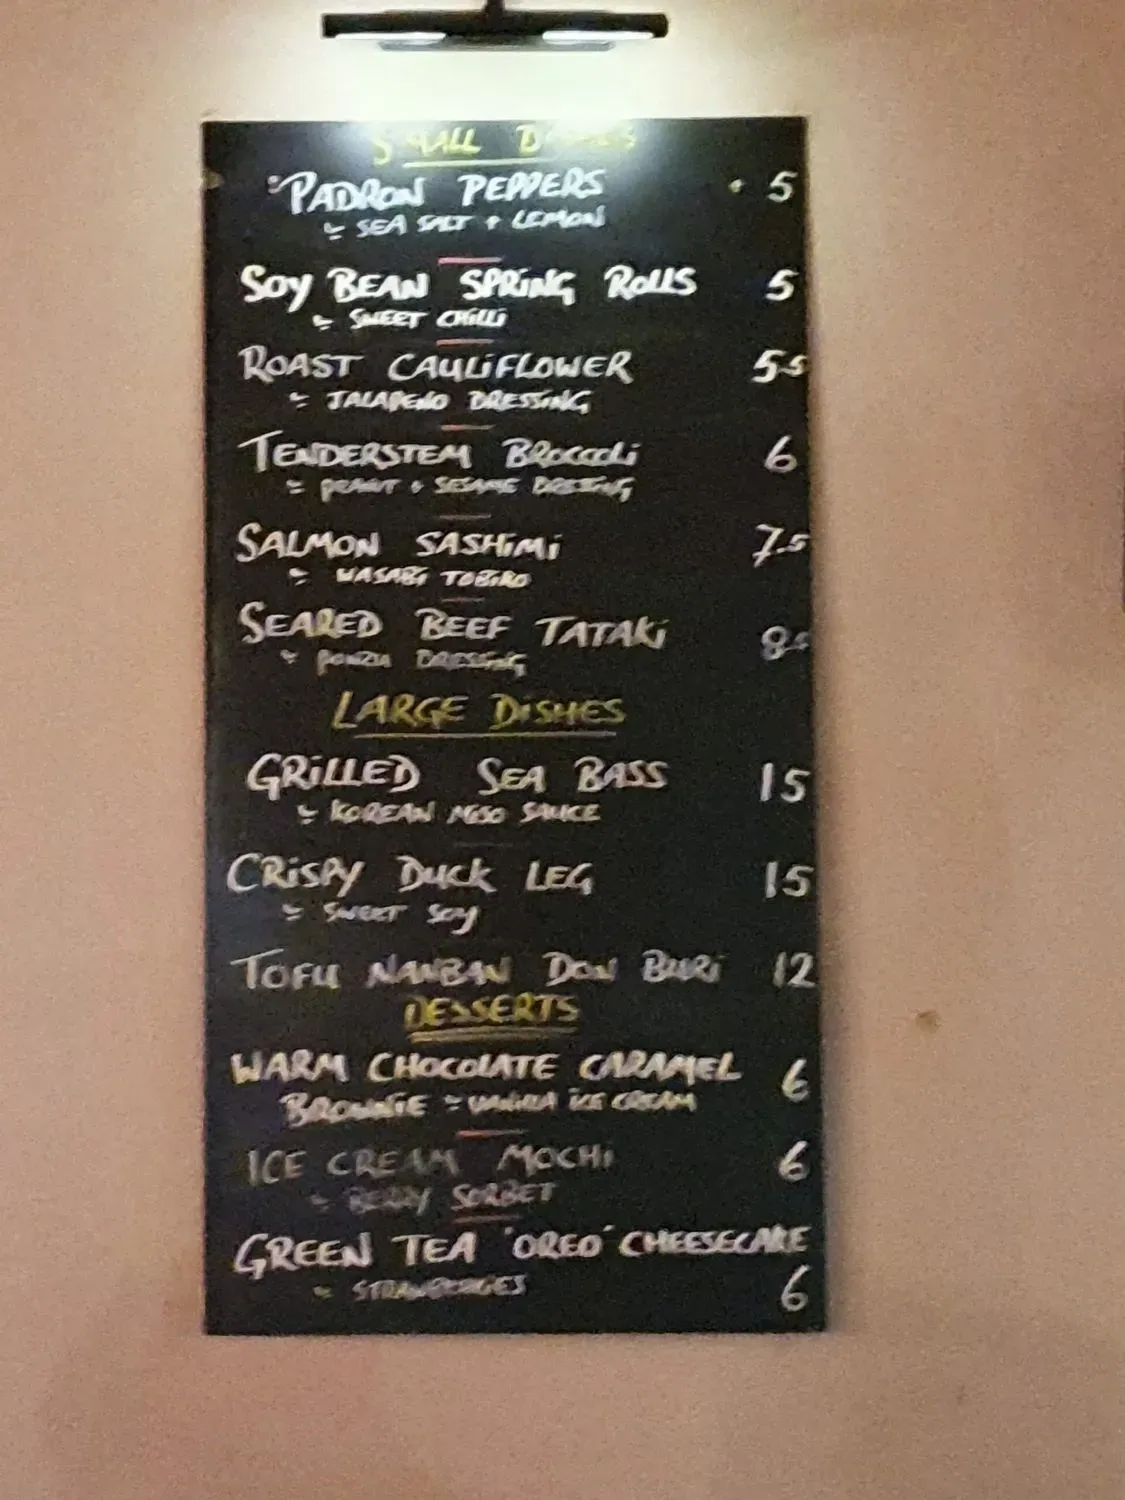 SMALL DISHES
PADRON PEPPERS 5
SEA SALT + LEMON
SOY BEAN SPRING ROLLS 5
SWEET CHILLI
ROAST CAULIFLOWER 5.5
JALAPENO DRESSING
TENDERSTEM BROCCOLI 6
PEANUT + SESAME DRESSING
SALMON SASHIMI 7.5
WASABI TOBIKO
SEARED BEEF TATAKI 8.5
PONZU DRESSING
LARGE DISHES
GRILLED SEA BASS 15
KOREAN MISO SAUCE
CRISPY DUCK LEG 15
SWEET SOY
TOFU NANBAN DON BURI 12
DESSERTS
WARM CHOCOLATE CARAMEL 6
BROWNIE VANILLA ICE CREAM
ICE CREAM MOCHI 6
BERRY SORBET
GREEN TEA 'OREO' CHEESECAKE
STRAWBERRIES 6